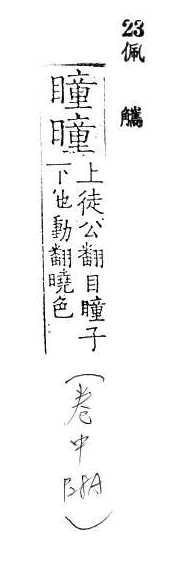 23
佩觿
瞳曈
上徒公翻目瞳子
下他動翻曉色
(卷中